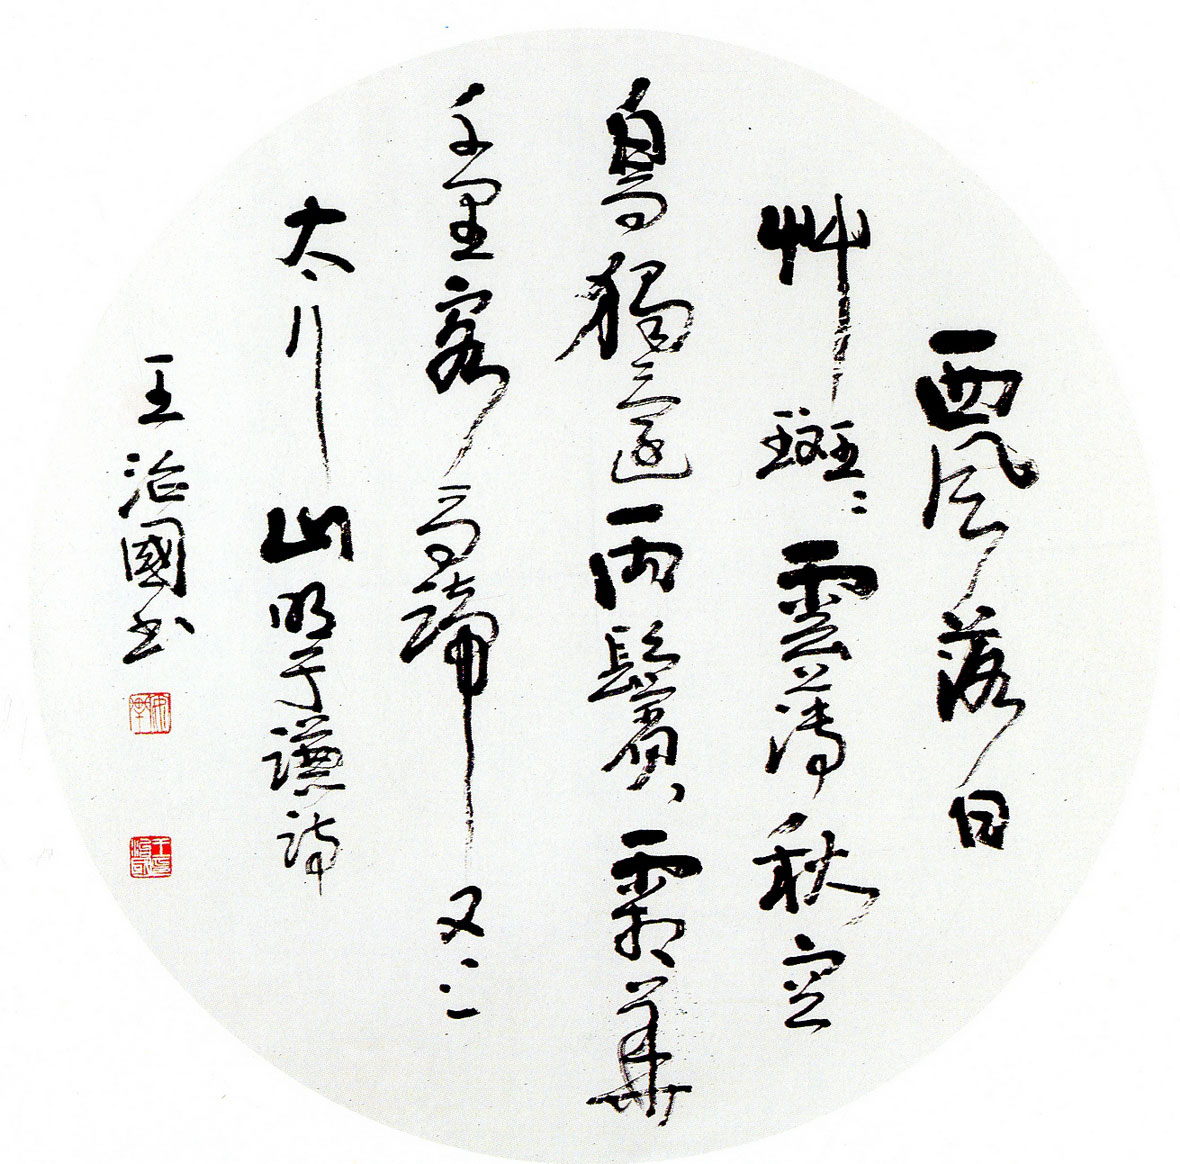 西風落日
艸斑〻雲薄秋空
鳥獨還兩鬢霜華
千里客馬蹄又上
太行山明于謙詩
王治國书